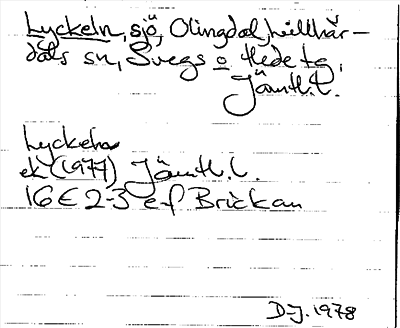 Lyckeln, sjö, Olingdal, Lillhär-
dals sn, Svegs o Hede tg,
Jämtl. l.
Lyckeln
ek (1977) Jämtl. l.
16E 2-3 e-f Brickan
D-J. 1978